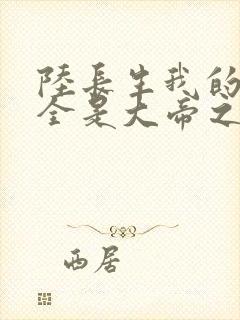 陸長生我的
全是大帝之
西居